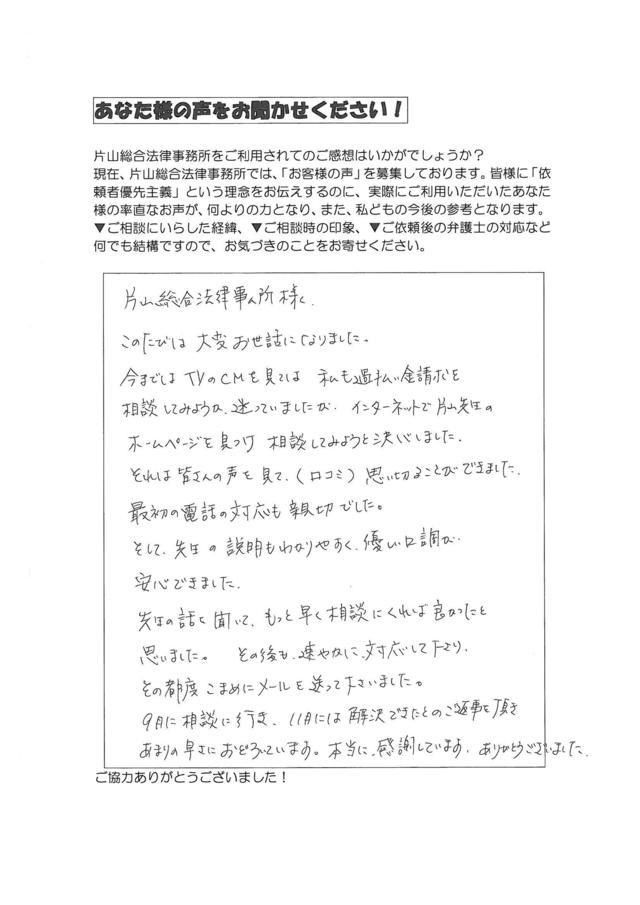 あなた様の声をお聞かせください！
片山総合法律事務所をご利用されてのご感想はいかがでしょうか？
現在、片山総合法律事務所では、「お客様の声」を募集しております。皆様に「依
頼者優先主義」という理念をお伝えするのに、実際にご利用いただいたあなた
様の率直なお声が、何よりの力となり、また、私どもの今後の参考となります。
▼ご相談にいらした経緯、▼ご相談時の印象、▼ご依頼後の弁護士の対応など
何でも結構ですので、お気づきのことをお寄せください。
片山総合法律事ム所様へ
このたびは大変お世話になりました。
今まではTVのCMを見ては 私も過払い金請求を
相談してみようか、迷っていましたが、インターネットで片山先生の
ホームページを見つけ 相談してみようと決心しました。
それは皆さんの声を見て、（口コミ）思い切ることができました。
最初の電話の対応も親切でした。
そして、先生の説明もわかりやすく、優しい口調が
安心できました。
先生の話を聞いて、もっと早く相談にくれば良かったと
思いました。 その後も、速やかに対応して下さり、
その都度こまめにメールを送って下さいました。
9月に相談に行き、11月には解決できたとのご返事を頂き
あまりの早さにおどろいています。本当に、感謝しています。ありがとうございました。
ご協力ありがとうございました！